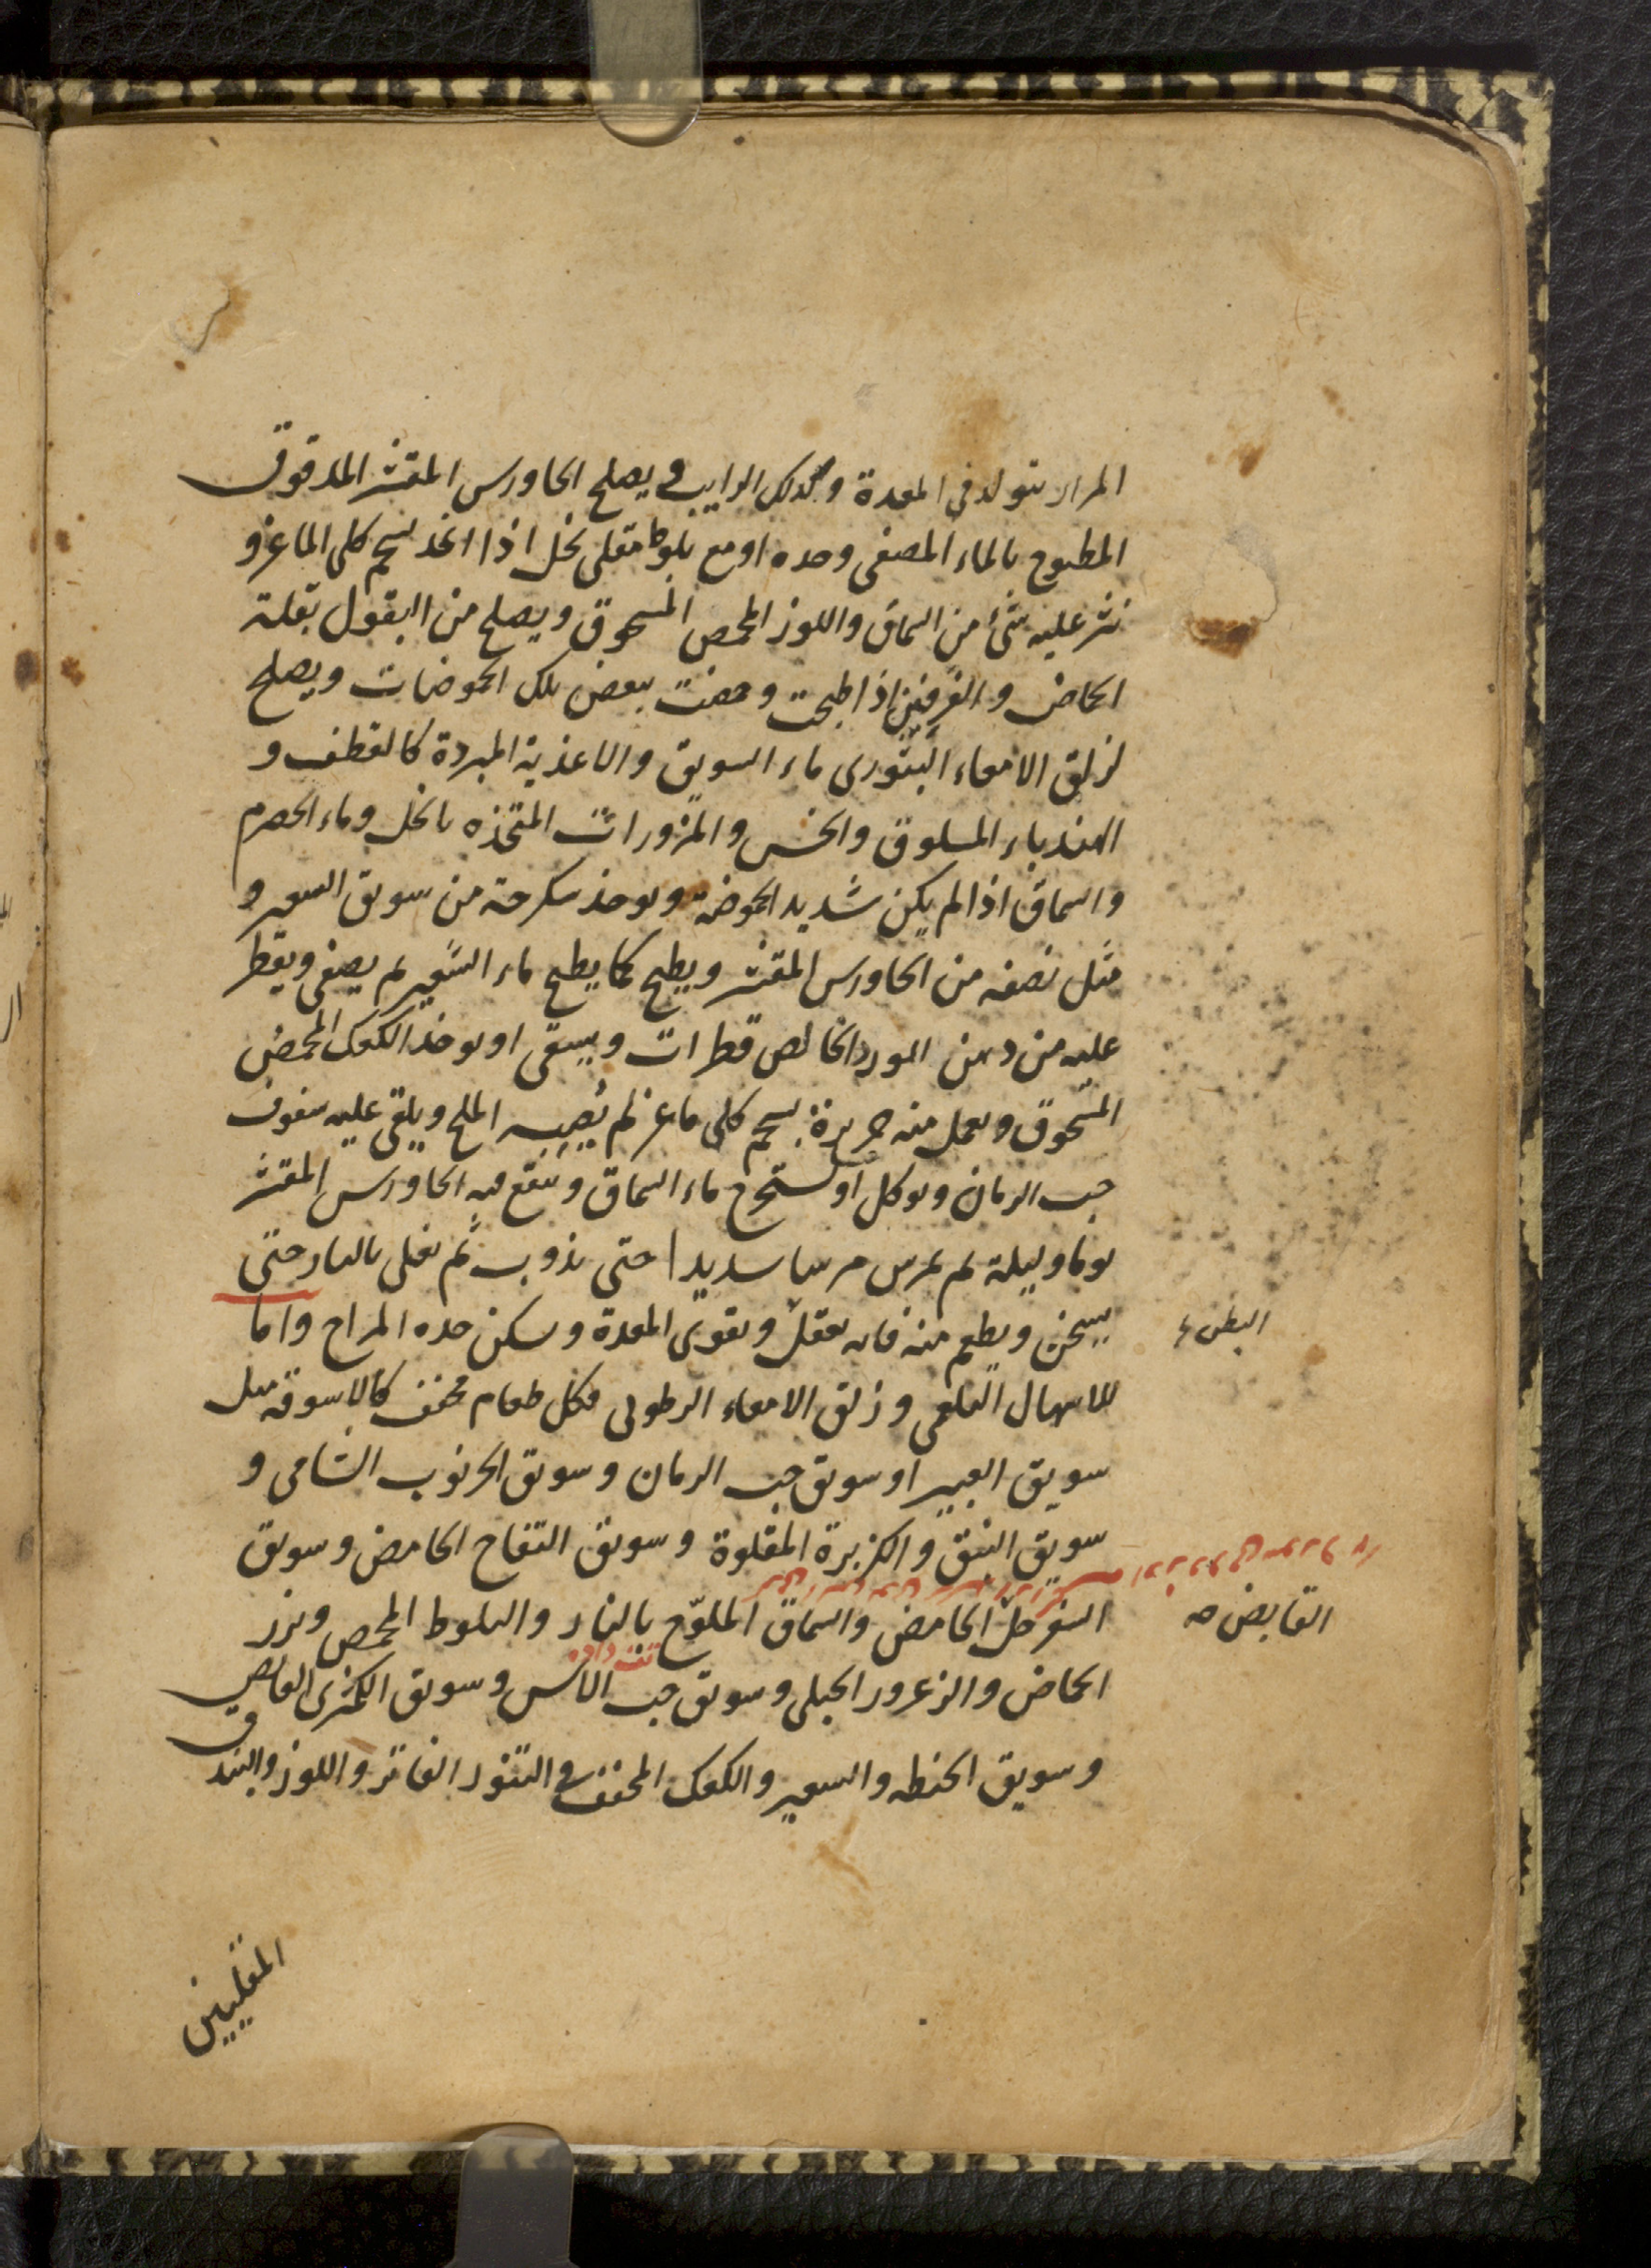 المرار يتولد في المعدة وكذلك الرايب في يصلح الجاورس المقشر المدقوق
المطبوخ بالماء المصفى وحده او مع بلوط مقلى بخل اذا اتخذ بشحم كلى الماعز و
نثر عليه شئ من السماق واللوز المحمص المسحوق ويصلح من البقول بقلة
الحماض والفرفين اذا طبخت وحمضت ببعض تلك الحموضات ويصلح
لزلق الامعاء البثورى ماء السويق والاغذية المبردة كالقطف و
الهندباء المسلوق والخس والمزورات المتخذه بالخل وماء الحصرم
والسماق اذا لم يكن شديد الحموضة ويوخذ سكرجة من سويق الشعير و
مثل نصفه من الجاورس المقشر ويطبخ كما يطبخ ماء الشعير ثم يصفى ويقطر
عليه من دهن الورد الخالص قطرات ويسقى او يوخذ الكعك المحمض
المسحوق ويعمل منه حريرة بشحم كلى ماعز لم يصبه الملح ويلقى عليه سفوف
حب الرمان ويوكل او يستخرج ماء السماق وينقع فيه الجاورس المقشر
يوما وليلة ثم يمرس مرسا شديدا حتى يذوب ثم يغلى بالنار حتى
يسخن ويطعم منه فانه يعقل ويقوى المعدة ويسكن حده المراح واما
البطن
للاسهال البلغمى وزلق الامعاء الرطوبى فكل طعام مجفف كالاسوقه مثل
سويق الغبيرا وسويق حب الرمان وسويق الخرنوب الشامى و
سويق النبق والكزبرة المقلوة وسويق التفاح الحامض وسويق
السفرجل الحامض والسماق الملوّح بالنار والبلوط المحمص وبزر
القابض صه
تفت داده
الحماض والزعرور الجبلى وسويق حب الاس وسويق الكمثرى القابض
وسويق الحنطه والشعير والكعك المجفف في التنور الفاتر واللوز والبندق
المقليين